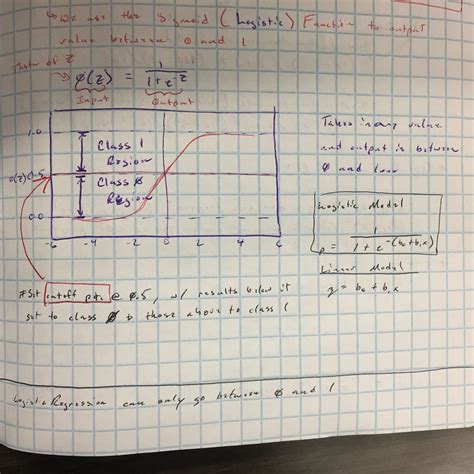 ↳ We use the Sigmoid (Logistic) Function to output
value between 0 and 1
Theta of Z
↳ φ(z) = 1 / 1+e^-z
Input Output
1.0
Class 1
Region
φ(z) 0.5
Class 0
Region
0.0
-6 -4 -2 0 2 4 6
Takes in any value
and output is between
0 and
Logistic Model
p = 1 / 1 + e^-(b₀+b₁x)
Linear Model
y = b₀ + b₁x
#Set cutoff pt. @ 0.5, w/ results below it
set to class 0 & those above to class 1
Logistic Regression can only go between 0 and 1